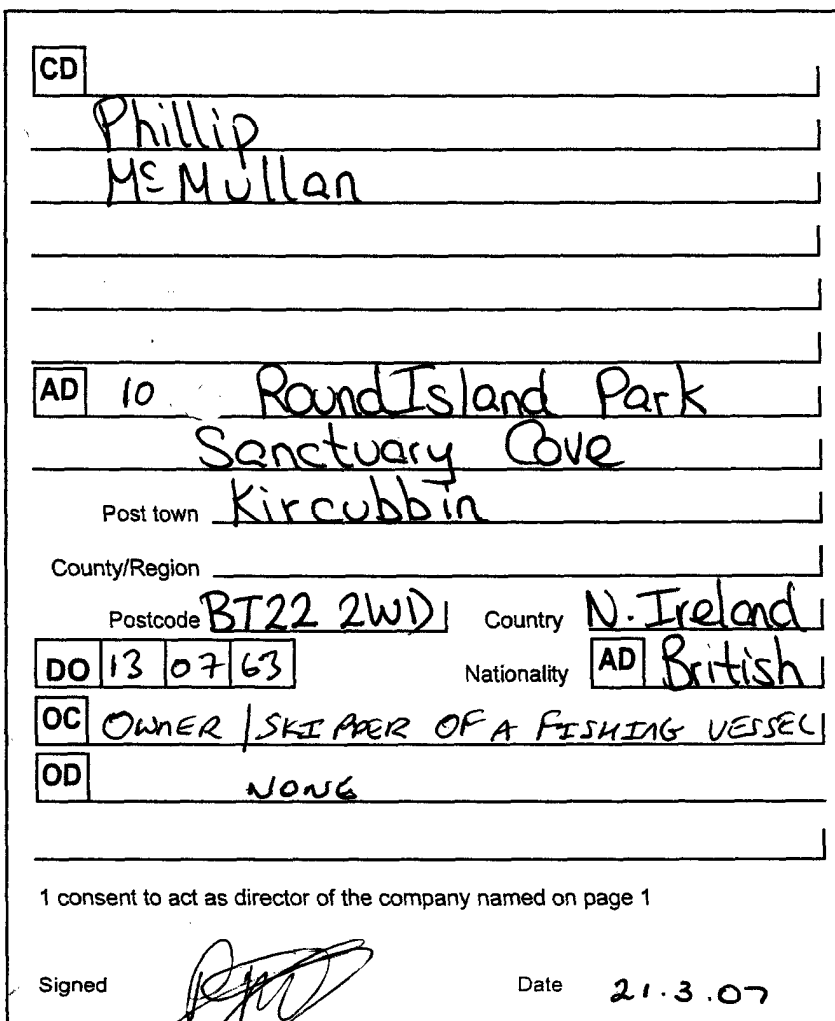 CD
Phillip
Mc Mullan
AD 10 Round Island Park
Sanctuary Cove
Post town Kircubbin
County/Region
Postcode BT22 2WD Country N. Ireland
DO 13 07 63 Nationality AD British
OC OWNER / SKIPPER OF A FISHING VESSEL
OD NONE
1 consent to act as director of the company named on page 1
Signed Date 21.3.07